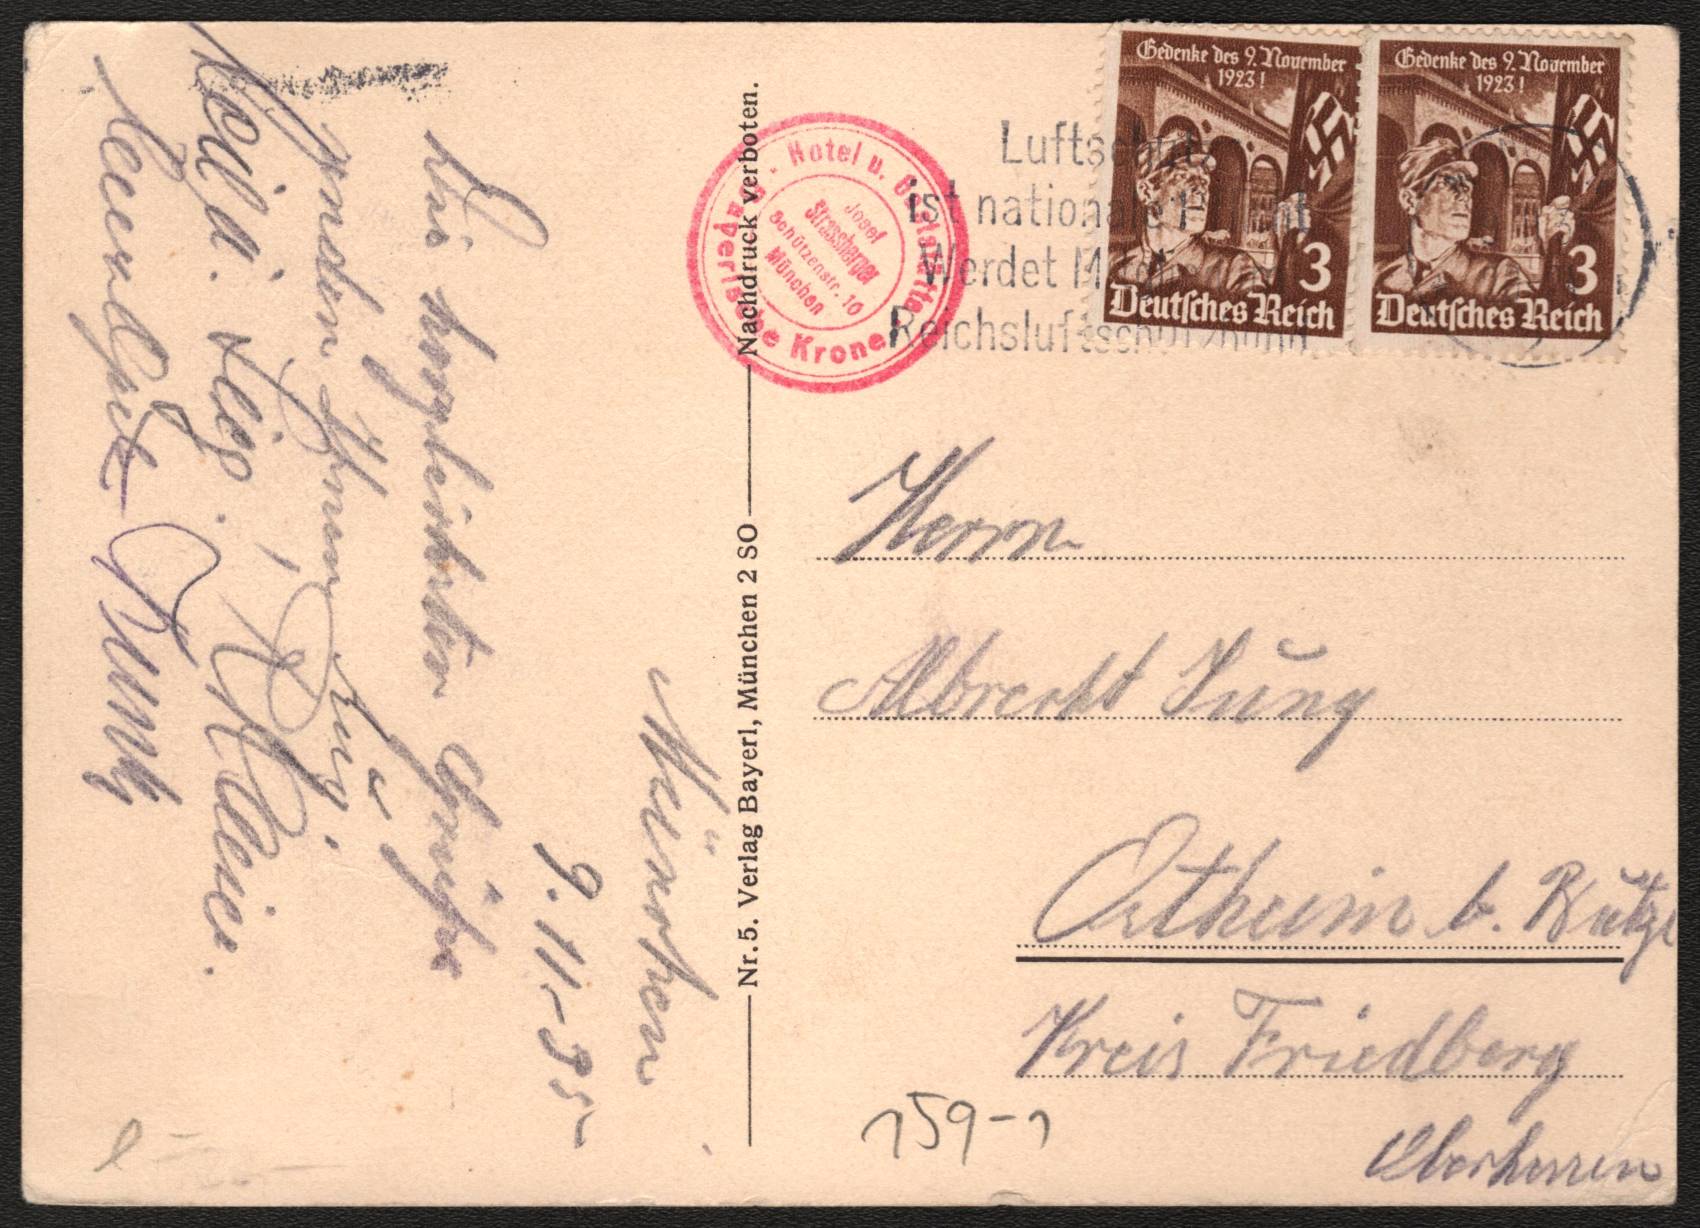 München
9.11.35
Die herzlichsten Grüße
senden Ihnen
Nachdruck verboten.
Nr. 5. Verlag Bayerl, München 2 SO
Hotel u. Gaststätte
Bayerische Krone
Josef
Strassberger
Schützenstr. 10
München
Luftschutz
ist nationale Pflicht
Werdet Mitglied im
Reichsluftschutzbund
Gedenke des 9. November
1923!
3
Deutsches Reich
Gedenke des 9. November
1923!
3
Deutsches Reich
Herrn
Albrecht Jung
Ostheim b. Butzb
Kreis Friedberg
Oberhessen
159-1